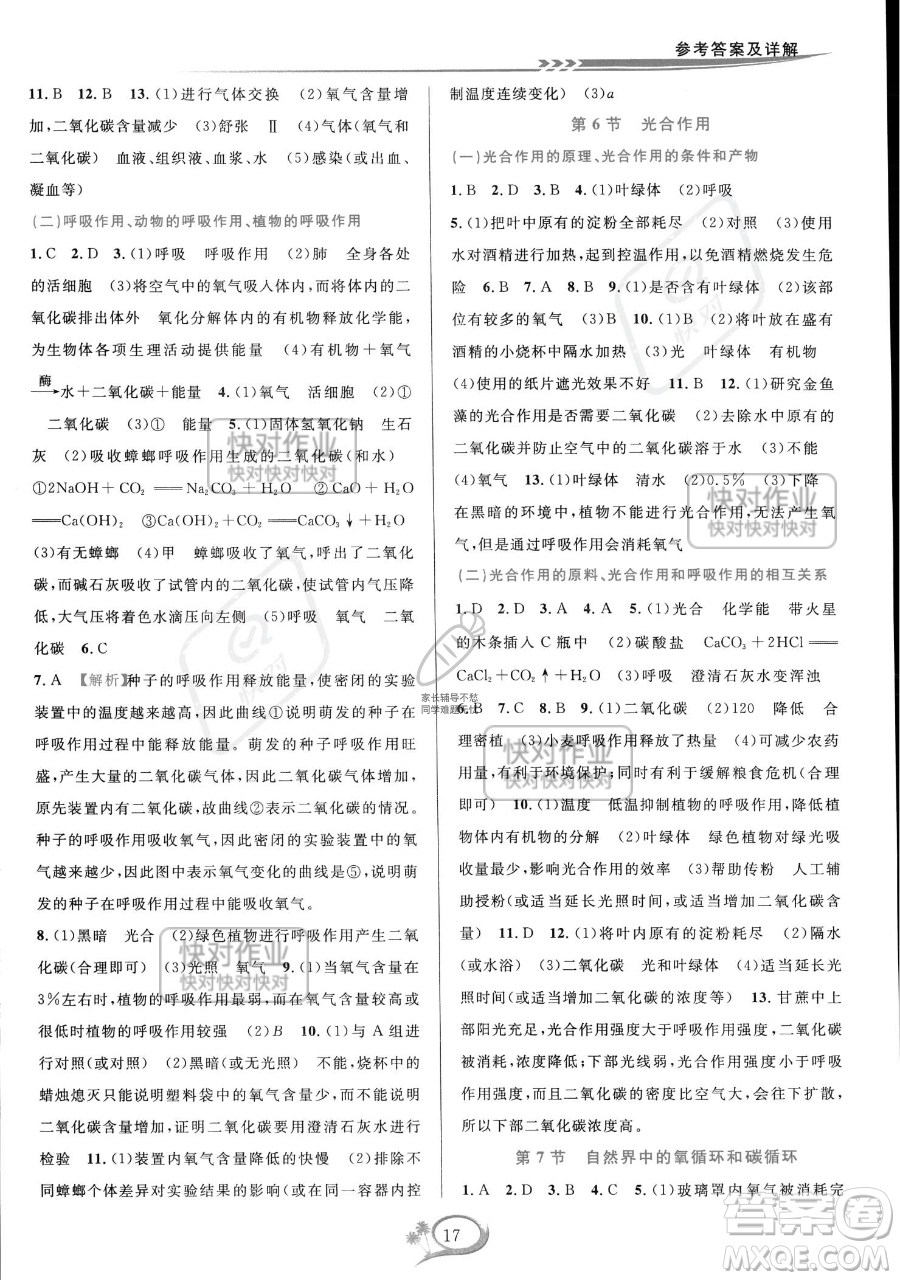 参考答案及详解
11.B 12.B 13.(1)进行气体交换 (2)氧气含量增
加,二氧化碳含量减少 (3)舒张 Ⅱ (4)气体(氧气或
二氧化碳) 血液、组织液、血浆、水 (5)感染(或出血、
凝血等)
(二)呼吸作用、动物的呼吸作用、植物的呼吸作用
1.C 2.D 3.(1)呼吸 呼吸作用 (2)肺 全身各处
的活细胞 (3)将空气中的氧气吸入人体内,将体内的二
氧化碳排出体外 氧化分解体内的有机物释放化学能,
为生物体各项生理活动提供能量 (4)有机物+氧气
酶
⟶水+二氧化碳+能量 4.(1)氧气 活细胞 (2)①
二氧化碳 (3)① 能量 5.(1)固体氢氧化钠 生石
灰 (2)吸收蟑螂呼吸作用生成的二氧化碳(和水)
①2NaOH+CO₂══Na₂CO₃+H₂O ②CaO+H₂O
══Ca(OH)₂ ③Ca(OH)₂+CO₂══CaCO₃↓+H₂O
(3)有无蟑螂 (4)甲 蟑螂吸收了氧气,呼出了二氧化
碳,而碱石灰吸收了试管内的二氧化碳,导致气压降
低,大气压将着色水滴压向左侧 (5)呼吸 氧气 二氧
化碳 6.C
7.A 【解析】种子的呼吸作用释放能量,使密闭的实验
装置中的温度越来越高。因此曲线①说明萌发的种子在
呼吸作用过程中能释放能量。萌发的种子呼吸作用旺
盛,产生大量的二氧化碳气体,使二氧化碳含量增加,
原先装置内有二氧化碳,故曲线②表示二氧化碳的情况。
种子的呼吸作用吸收氧气,所以密闭的实验装置中的氧
气越来越少。因此图中表示氧气变化的曲线是⑤,说明
萌发的种子在呼吸作用过程中能吸收氧气。
8.(1)黑暗 光合 (2)绿色植物进行呼吸作用产生二氧
化碳(合理即可) (3)光照 氧气 9.(1)当氧气含量在
3%左右时,植物的呼吸作用最弱;而在氧气含量较高或
很低时植物的呼吸作用较强 (2)B 10.(1)与A组进
行对照(或对照) (2)黑暗(或无光) 不能,烧杯中的
蜡烛熄灭只能说明塑料袋中的氧气含量少,而不能说明
二氧化碳含量增加,证明二氧化碳需要用澄清石灰水进行
检验 11.(1)装置内氧气含量降低的快慢 (2)排除不
同蟑螂个体差异对实验结果的影响(或在同一容器内控
制温度连续变化) (3)a
第6节 光合作用
(一)光合作用的原理、光合作用的条件和产物
1.B 2.D 3.B 4.(1)叶绿体 (2)呼吸
5.(1)把叶中原有的淀粉全部耗尽 (2)对照 (3)使用
水对酒精进行加热,起到控温作用,以免酒精燃烧发生危
险 6.B 7.A 8.B 9.(1)是否含有叶绿体 (2)该部
位有较多的氧气 (3)B 10.(1)将叶放在盛有
酒精的小烧杯中隔水加热 (3)光 叶绿体 有机物
(4)使用的纸片遮光效果不好 11.B 12.(1)研究金鱼
藻的光合作用是否需要二氧化碳 (2)去除水中原有的
二氧化碳并防止空气中的二氧化碳溶于水 (3)不能
(4)氧气 13.(1)叶绿体 清水 (2)0.5% (3)下降
在黑暗的环境中,植物不能进行光合作用,无法产生氧
气,但是通过呼吸作用会消耗氧气
(二)光合作用的原料、光合作用和呼吸作用的相互关系
1.D 2.D 3.A 4.D 5.(1)光合 化学能 带火星
的木条插入C瓶中 (2)碳酸盐 CaCO₃+2HCl══
CaCl₂+CO₂↑+H₂O (3)呼吸 澄清石灰水变浑浊
6.B 7.C 8.B 9.(1)二氧化碳 (2)120 降低 合
理密植 (3)小麦呼吸作用释放了热量 (4)可减少农药
用量,有利于环境保护;同时有利于缓解粮食危机(合理
即可) 10.(1)温度 低温抑制植物的呼吸作用,降低植
物体内有机物的分解 (2)叶绿体 绿色植物对绿光吸
收量最少,影响光合作用的效率 (3)帮助传粉 人工辅
助授粉(或适当延长光照时间或适当增加二氧化碳的含
量) 11.D 12.(1)将叶内原有的淀粉耗尽 (2)隔水
(或水浴) (3)二氧化碳 光和叶绿体 (4)适当延长光
照时间(或适当增加二氧化碳的浓度等) 13.甘蔗中上
部阳光充足,光合作用强度大于呼吸作用强度,二氧化碳
被消耗,浓度降低;下部光线弱,光合作用强度小于呼吸
作用强度,且二氧化碳的密度比空气大,会往下扩散,
所以下部二氧化碳浓度高。
第7节 自然界中的氧循环和碳循环
1.A 2.D 3.B 4.C 5.(1)玻璃罩内氧气被消耗完
17
快对作业
快对快对快对
快对作业
快对快对快对
快对作业
快对快对快对
快对作业
快对快对快对
快对
家长辅导不愁
同学难题无忧
答案圈
MXQE.COM